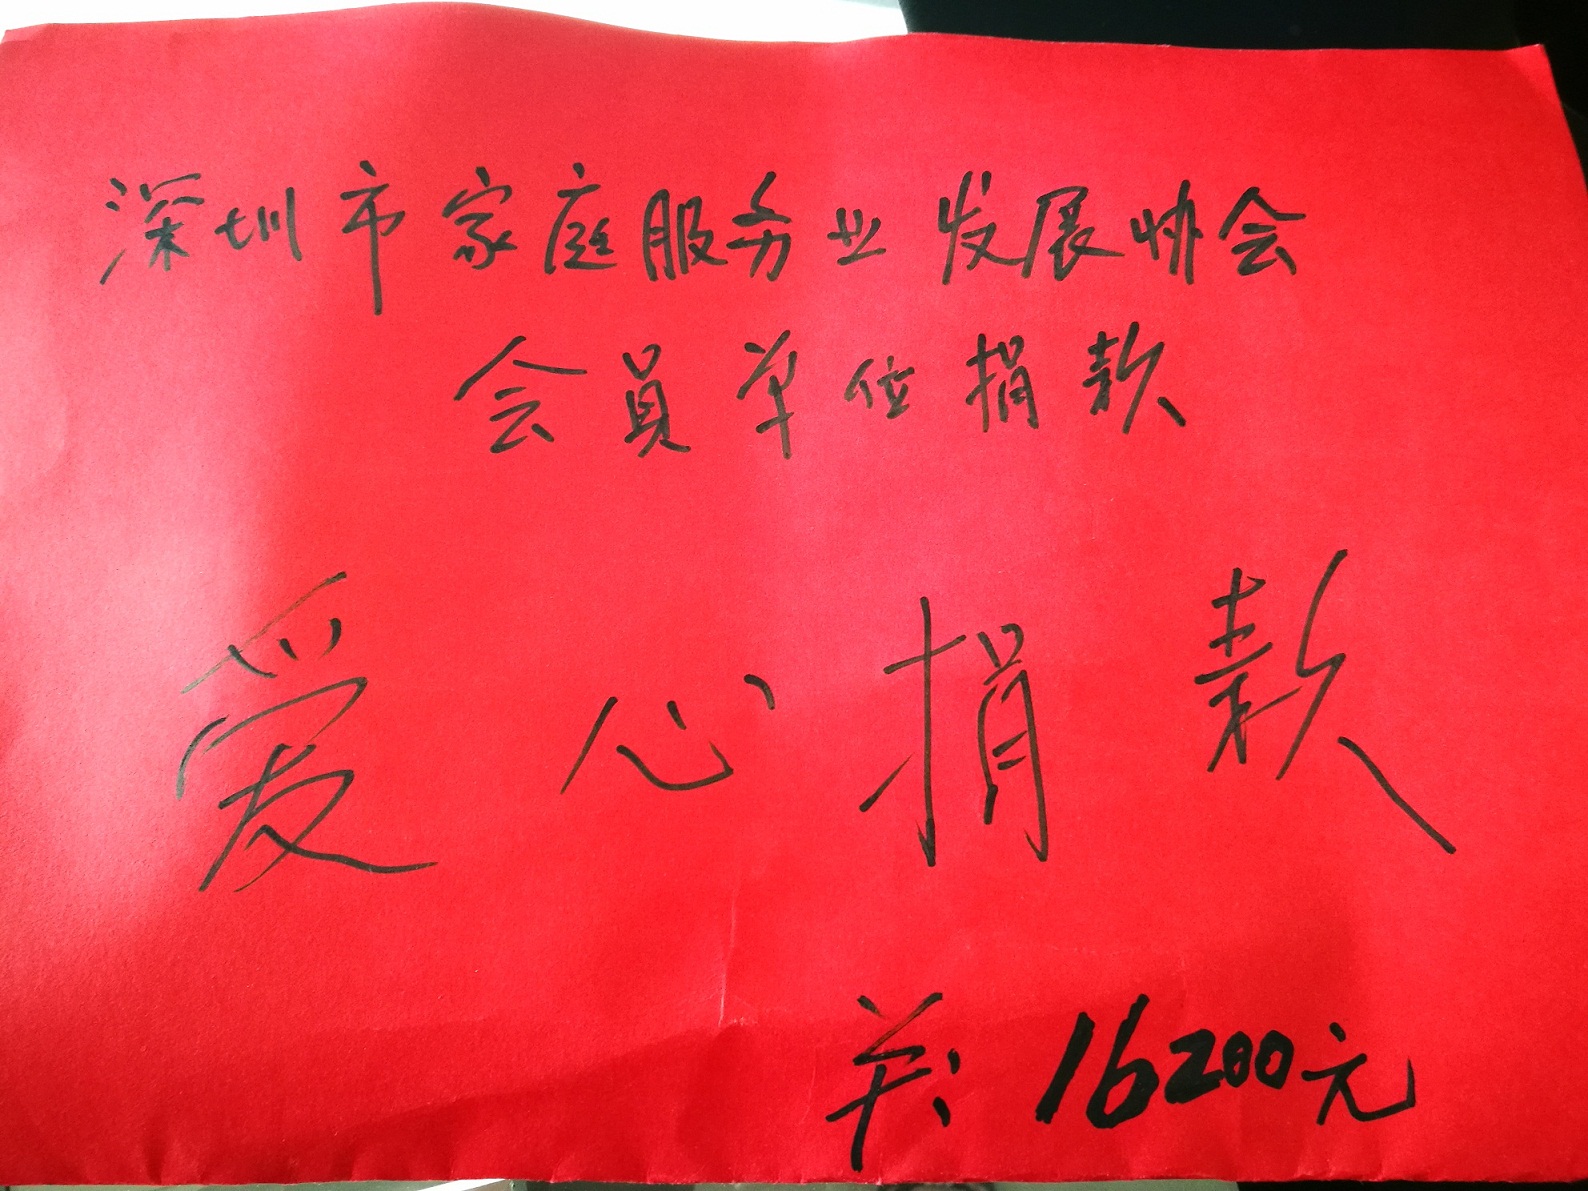 深圳市家庭服务业发展协会
会员单位捐款
爱心捐款
16200元